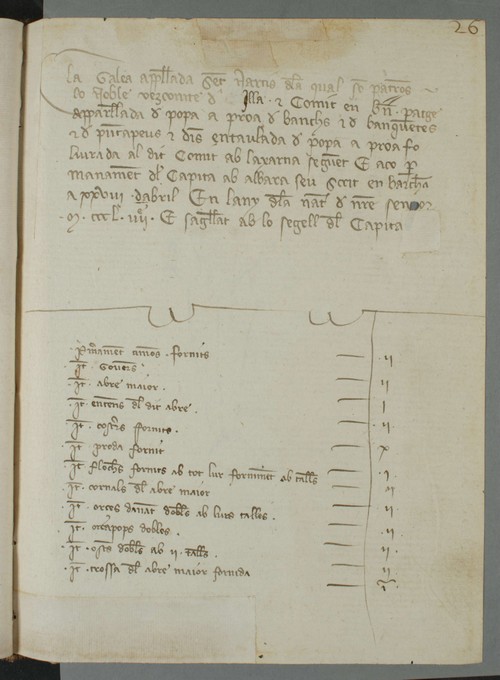 26
La Galea appellada Sent Narcis dla qual so patrons
lo Noble vezcomte d Illa · & Comit en Bn. patge
apparellada d popa a proa d banchs & d banquetes
& d puntapeus & dins entaulada d popa a proa fo
liurada al dit Comit ab laxarna seguent E aço per
manament dl Capita ab albara seu Scrit en Barchna
a xxviii · dabril · En lany dla nat d nre senyor
· M · ccc L · viiii · E sagellat ab lo segell dl Capita
· Prmament timons · fornits · ii
· It · Governs
· It · abre maior · ii
· It · entens dl dit abre · i
· It · costers fornits · ii
· It · proda fornit x
· It · flochs fornits ab tot lur forniment ab talls · i ·
· It · cornals dl abre maior vi
· It · orces davant dobles ab lurs talles · ii
· It · orçapops dobles · ii ·
· It · osts dobles ab ii · talls · ii
· It · trossa dl abre maior fornida ii
i